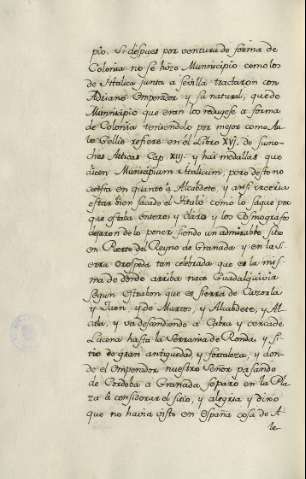 pio. Si despues por ventura de forma de
Colonia no se hizo Municipio como los
de Italica junta a sevilla tractaron con
Adriano Emperador y su natural, que de
Municipio que eran los reduxese a forma
de Colonia teniendolo por mejor como Au
lo Gellio refiere en el Libro XVJ. de sus no
ches Atticas Cap XIIJ. y hai medallas que
dicen Municipium Italicum, pero desto no
en quanto a Alcabdete, y
estar bien sacado el Titulo como lo saque por
que estaba entero y claro y los Cosmografos
dejaron de lo poner siendo un admirable sitio
en Puerto del Reyno de Granada y en la Si
erra Orospeda tan celebrada que es la mis
ma de donde arriba nace Guadalquivir
segun Estrabon que es sierra de Cazorla
y Jaen, y de Martos, y Alcabdete, y Al
cala, y va descendiendo a Cabra y cerca de
Lucena hasta la Serrania de Ronda, y si
tio de gran antiguedad y fortaleza, y don
de el Emperador nuestro Señor pasando
de Cordoba a Granada se paro en la Pla
za à considerar el sitio, y alegria y dixo
que no havia visto en España cosa de A
le